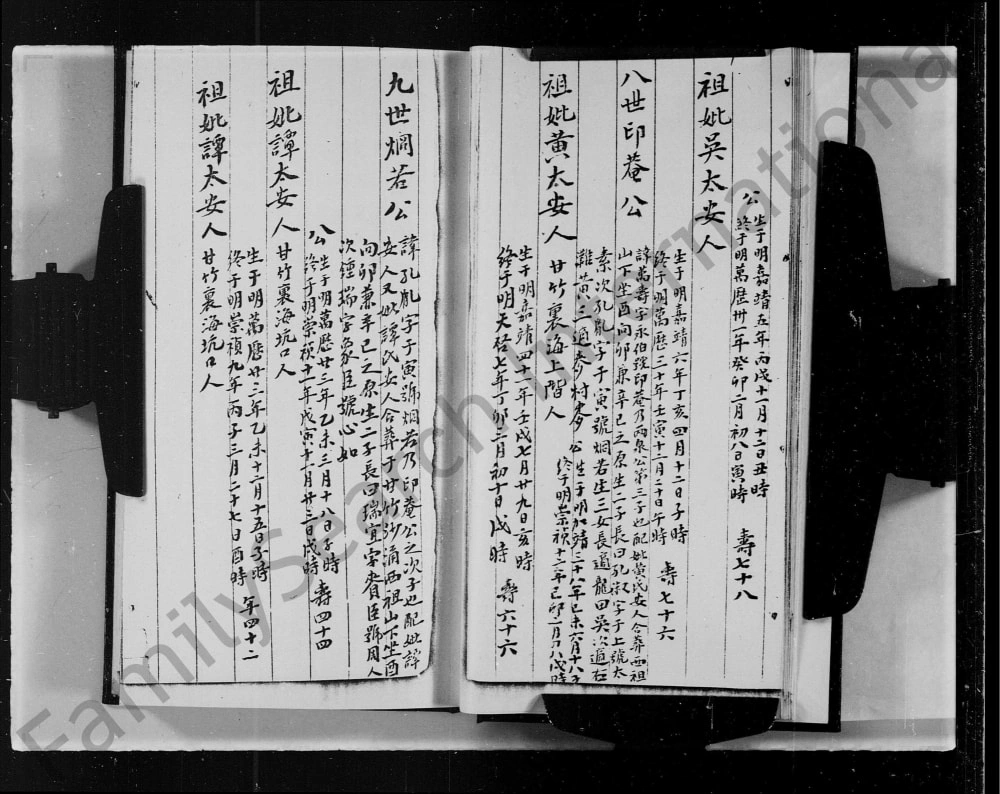 公 生于明嘉靖五年丙戌十一月十二日丑時
終于明萬歷卅一年癸卯二月初八日寅時 壽七十八
祖妣吳太安人
生于明嘉靖六年丁亥四月十二日子時
終于明萬歷三十年壬寅十二月二十日午時 壽七十六
八世印菴公
諱萬壽字永伯號印菴乃兩泉公第三子也配妣黃氏安人合葬西祖
山下坐酉向卯兼辛巳之原生二子長曰孔淑字于上號太
素次孔胤字于寅號烟若生三女長適龍田吳次適石
灘黃三適麥村麥 公 生于明加靖三十八年己未六月十八子
終于明崇禎十二年己卯一月 八戌時
祖妣黃太安人 甘竹裏海上階人
生于明嘉靖四十一年壬戌七月廿九日亥時
終于明天啓七年丁卯二月初十日戌時 壽六十六
九世烱若公
諱孔胤字于寅號烟若乃印菴公之次子也配妣譚
安人又妣譚氏安人合葬于甘竹沙涌西祖山下坐酉
向卯兼辛巳之原生二子長曰瑞宜字賡臣號周人
次鍾瑞字象臣號心如
公 生于明萬歷廿三年乙未三月十八日子時
終于明崇禎十一年戊寅十一月廿三日戌時 壽四十四
祖妣譚太安人 甘竹裏海坑口人
生于明萬歷廿三年乙未十二月十五日子時
終于明崇禎九年丙子三月二十七日酉時 年四十二
祖妣譚太安人 甘竹裏海坑口人
FamilySearch International